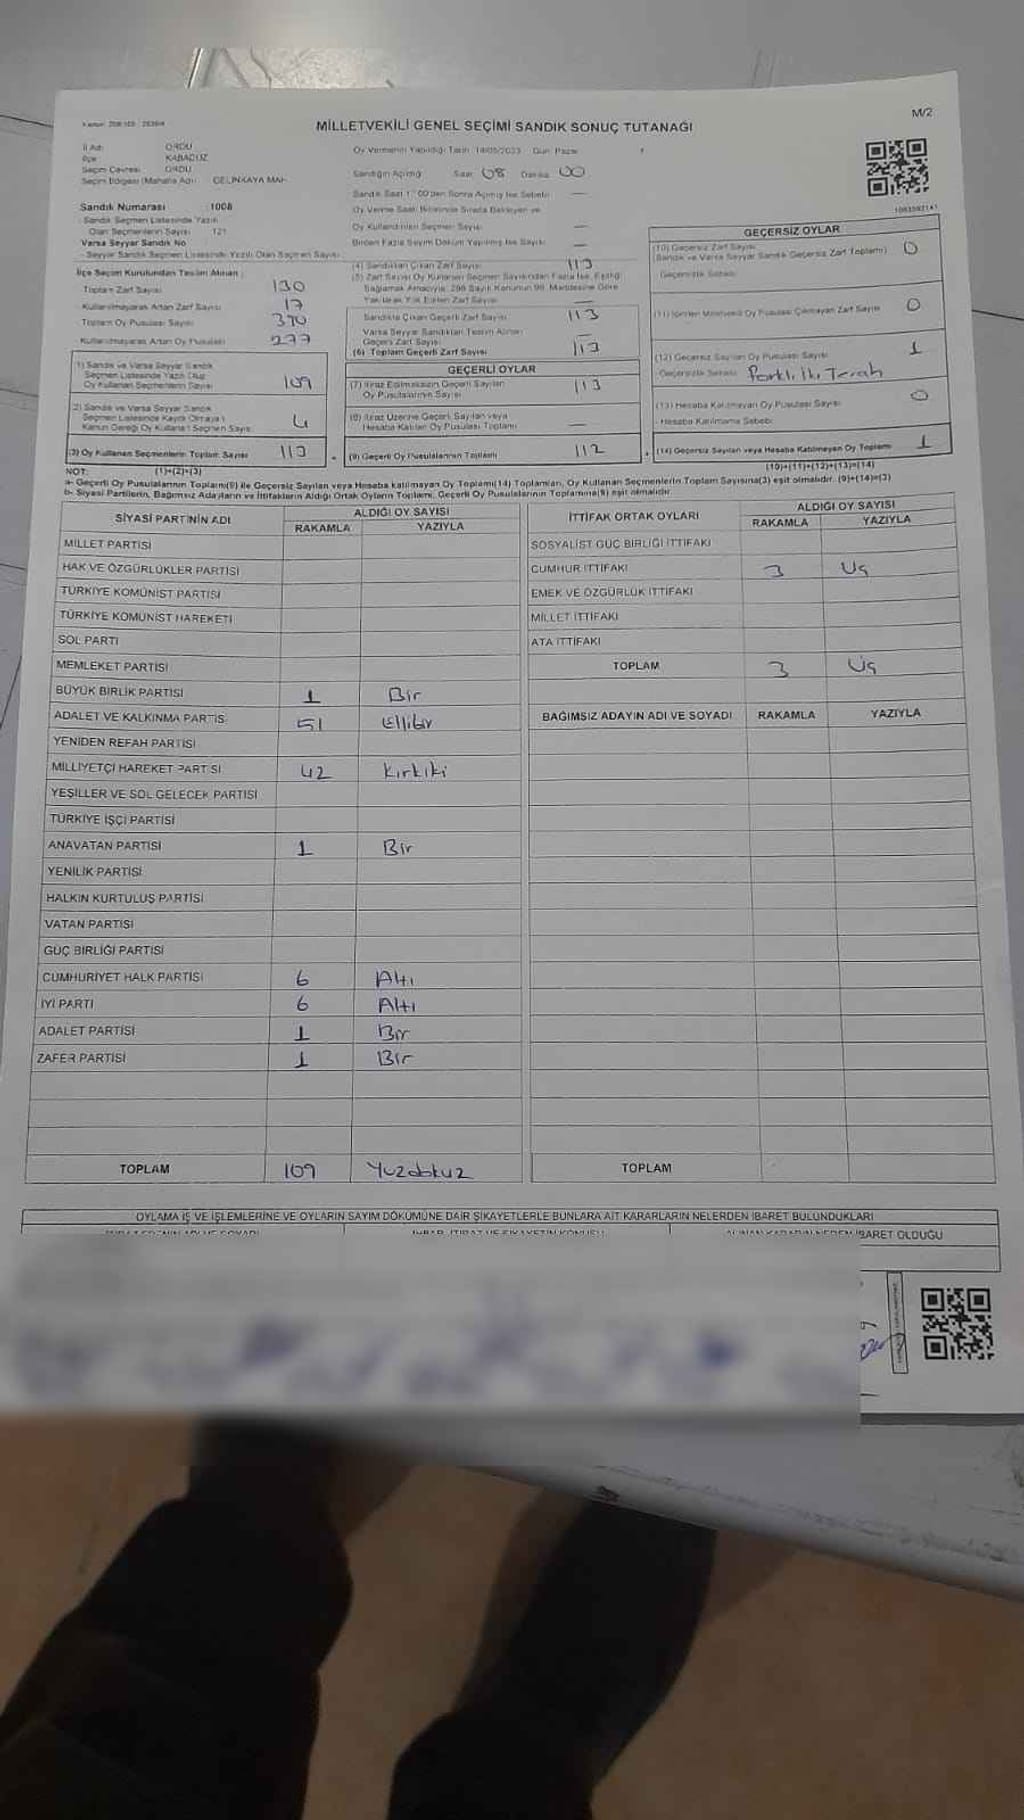 M/2
MİLLETVEKİLİ GENEL SEÇİMİ SANDIK SONUÇ TUTANAĞI
İl Adı ORDU
İlçe KABADÜZ
Seçim Çevresi ORDU
Seçim Bölgesi (Mahalle Adı)
Oy Vermenin Yapıldığı Tarih 14/05/2023 Gün Pazar
Sandığın Açıldığı Saat 08 Dakika 00
Sandık Numarası 1008
Sandık Seçmen Listesinde Yazılı
Olan Seçmen Sayısı 121
Varsa Seyyar Sandık No
Seyyar Sandık Seçmen Listesinde Yazılı Olan Seçmen Sayısı
Oy Kullandırılan Seçmen Sayısı —
Birden Fazla Sayım Döküm Yapılmış İse Sayısı —
İlçe Seçim Kurulundan Teslim Alınan
Toplam Zarf Sayısı 130
Kullanılmayarak Artan Zarf Sayısı 17
Toplam Oy Pusulası Sayısı 390
Kullanılmayarak Artan Oy Pusulası 277
1) Sandık ve Varsa Seyyar Sandık
Seçmen Listesinde Yazılı Olup
Oy Kullanan Seçmenlerin Sayısı 109
2) Sandık ve Varsa Seyyar Sandık
Seçmen Listesinde Kayıtlı Olmayan
Kanun Gereği Oy Kullanan Seçmen Sayısı 4
(3) Oy Kullanan Seçmenlerin Toplam Sayısı 113
(4) Sandıktan Çıkan Zarf Sayısı 113
Sandıkta Çıkan Geçerli Zarf Sayısı 113
Varsa Seyyar Sandıktan Teslim Alınan
Geçerli Zarf Sayısı —
(6) Toplam Geçerli Zarf Sayısı 113
GEÇERLİ OYLAR
(7) İtiraz Edilmeksizin Geçerli Sayılan
Oy Pusulalarının Sayısı 113
(8) İtiraz Üzerine Geçerli Sayılan veya
Hesaba Katılan Oy Pusulası Toplamı —
(9) Geçerli Oy Pusulalarının Toplamı 112
GEÇERSİZ OYLAR
(10) Geçersiz Zarf Sayısı
(Sandık ve Varsa Seyyar Sandık Geçersiz Zarf Toplamı) 0
Geçersizlik Sebebi
(11) İçinden Milletvekili Oy Pusulası Çıkmayan Zarf Sayısı 0
(12) Geçersiz Sayılan Oy Pusulası Sayısı 1
Geçersizlik Sebebi Farklı İki Tercih
(13) Hesaba Katılmayan Oy Pusulası Sayısı 0
Hesaba Katılmama Sebebi
(14) Geçersiz Sayılan veya Hesaba Katılmayan Oy Toplamı 1
NOT: (1)+(2)=(3)
(10)+(11)+(12)+(13)=(14)
a- Geçerli Oy Pusulalarının Toplamı(9) ile Geçersiz Sayılan veya Hesaba katılmayan Oy Toplamı(14) Toplamları, Oy Kullanan Seçmenlerin Toplam Sayısına(3) eşit olmalıdır. (9)+(14)=(3)
b- Siyasi Partilerin, Bağımsız Adayların ve İttifakların Aldığı Ortak Oyların Toplamı, Geçerli Oy Pusulalarının Toplamına(9) eşit olmalıdır.
SİYASİ PARTİNİN ADI ALDIĞI OY SAYISI
RAKAMLA YAZIYLA
MİLLET PARTİSİ
HAK VE ÖZGÜRLÜKLER PARTİSİ
TÜRKİYE KOMÜNİST PARTİSİ
TÜRKİYE KOMÜNİST HAREKETİ
SOL PARTİ
MEMLEKET PARTİSİ
BÜYÜK BİRLİK PARTİSİ 1 Bir
ADALET VE KALKINMA PARTİSİ 51 Ellibir
YENİDEN REFAH PARTİSİ
MİLLİYETÇİ HAREKET PARTİSİ 42 Kırkiki
YEŞİLLER VE SOL GELECEK PARTİSİ
TÜRKİYE İŞÇİ PARTİSİ
ANAVATAN PARTİSİ 1 Bir
YENİLİK PARTİSİ
HALKIN KURTULUŞ PARTİSİ
VATAN PARTİSİ
GÜÇ BİRLİĞİ PARTİSİ
CUMHURİYET HALK PARTİSİ 6 Altı
İYİ PARTİ 6 Altı
ADALET PARTİSİ 1 Bir
ZAFER PARTİSİ 1 Bir
TOPLAM 109 Yüzdokuz
İTTİFAK ORTAK OYLARI ALDIĞI OY SAYISI
RAKAMLA YAZIYLA
SOSYALİST GÜÇ BİRLİĞİ İTTİFAKI
CUMHUR İTTİFAKI 3 Üç
EMEK VE ÖZGÜRLÜK İTTİFAKI
MİLLET İTTİFAKI
ATA İTTİFAKI
TOPLAM 3 Üç
BAĞIMSIZ ADAYIN ADI VE SOYADI RAKAMLA YAZIYLA
TOPLAM
OYLAMA İŞ VE İŞLEMLERİNE VE OYLARIN SAYIM DÖKÜMÜNE DAİR ŞİKAYETLERLE BUNLARA AİT KARARLARIN NELERDEN İBARET BULUNDUKLARI
İBARET OLDUĞU